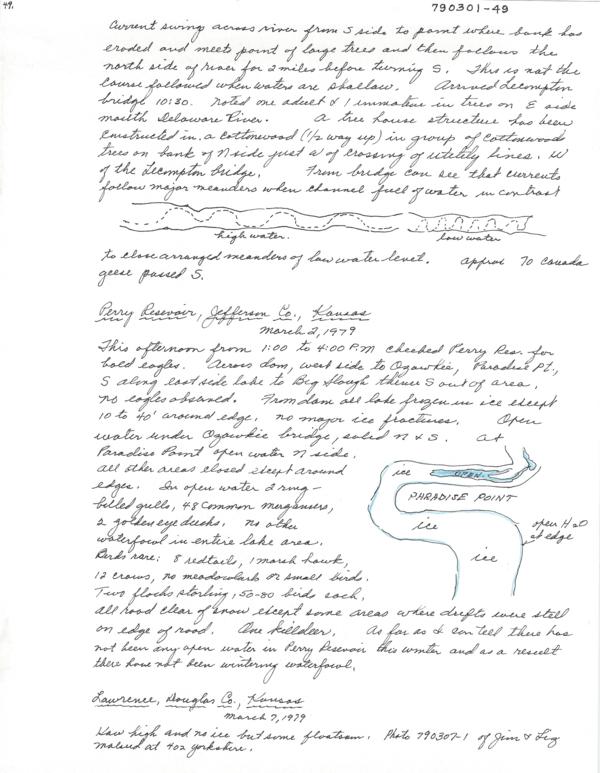 49.
790301-49
Current swing across river from S side to point where bank has
eroded and meets point of large trees and then follows the
north side of river for 2 miles before turning S. This is not the
course followed when waters are shallow. Arrived Lecompton
bridge 10:30. Noted one adult & 1 immature in trees on E side
mouth Delaware River. A tree house structure has been
constructed in a cottonwood (1/2 way up) in group of cottonwood
trees on bank of N side just W of crossing of utility lines. W
of the Lecompton bridge. From bridge can see that currents
follow major meanders when channel full of water in contrast
high water.
low water
to close arranged meanders of low water level. Approx 70 Canada
geese passed S.
Perry Resevoir, Jefferson Co., Kansas
March 2, 1979
This afternoon from 1:00 to 4:00 P.M checked Perry Res. for
bald eagles. Across dam, west side to Ozawkie, Paradise Pt.,
S along east side lake to Big Slough thence S out of area.
No eagles observed. From dam all lake frozen in ice except
10 to 40' around edge. No major ice fractures. Open
water under Ozawkie bridge, solid N & S. At
Paradise Point open water N side.
All other areas closed except around
edges. In open water 2 ring-
billed gulls, 48 common mergansers,
2 goldeneye ducks. No other
waterfowl in entire lake area.
Birds rare: 8 redtails, 1 marsh hawk,
12 crows, no meadowlark or small birds.
Two flocks starling, 50-80 birds each.
ice
OPEN
PARADISE POINT
ice
open H2O
at edge
ice
All road clear of snow except some areas where drifts were still
on edge of road. One killdeer. As far as I can tell there has
not been any open water in Perry Resevoir this winter and as a result
there have not been wintering waterfowl.
Lawrence, Douglas Co., Kansas
March 7, 1979
Kaw high and no ice but some floatsam. Photo 790307-1 of Jim & Liz
at 402 Yorkshire.